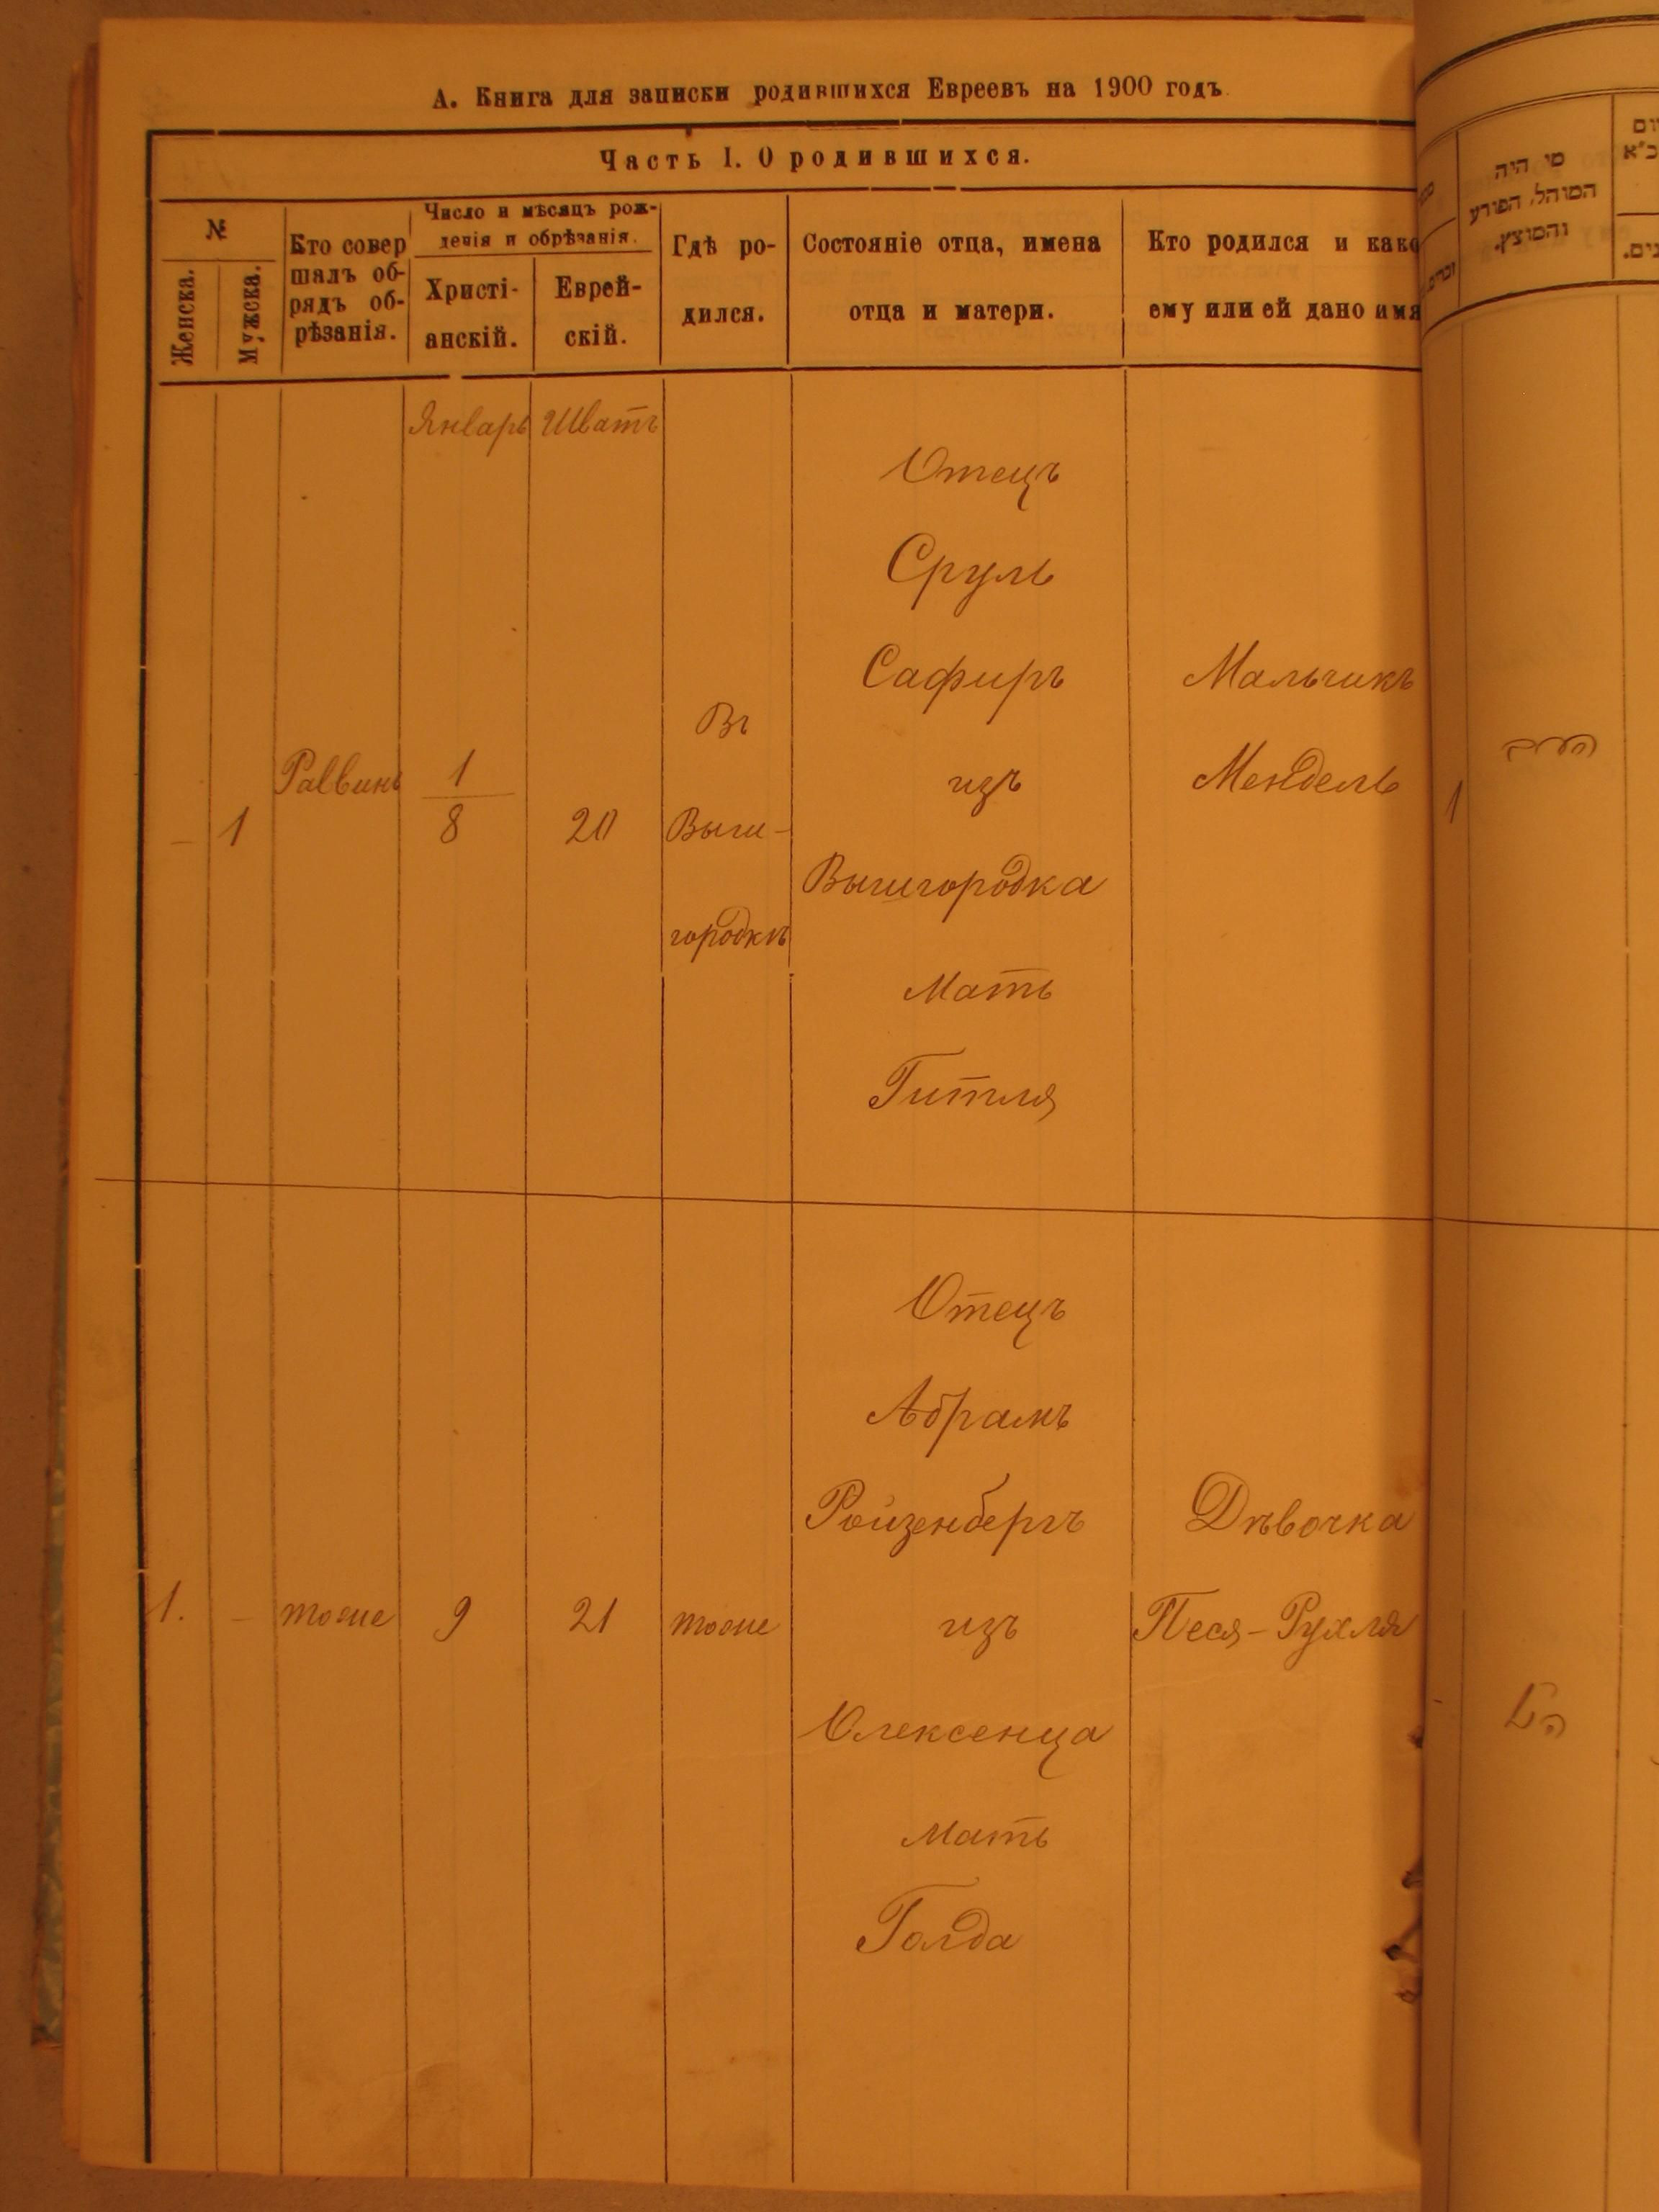 А. Книга для записки родившихся Евреевъ на 1900 годъ.
Часть I. О родившихся.
№
Женска.
Мужска.
Кто совер
шалъ об-
рядъ об-
рѣзанія.
Число и мѣсяцъ рож-
денія и обрѣзанія.
Христі-
анскій.
Еврей-
скій.
Гдѣ ро-
дился.
Состояніе отца, имена
отца и матери.
Кто родился и како
ему или ей дано имя
Январь Шватъ
– 1 Раввинъ
1
8
20
Въ
Выш-
городкѣ
Отецъ
Сруль
Сафиръ
изъ
Вышгородка
Мать
Гитля
Мальчикъ
Мендель
1. – тоже 9 21 тоже
Отецъ
Абрамъ
Ройзенбергъ
изъ
Олексенца
Мать
Голда
Дѣвочка
Песя-Рухля
מי היה
המוהל, הפורע
והמוצץ.
1
הרב